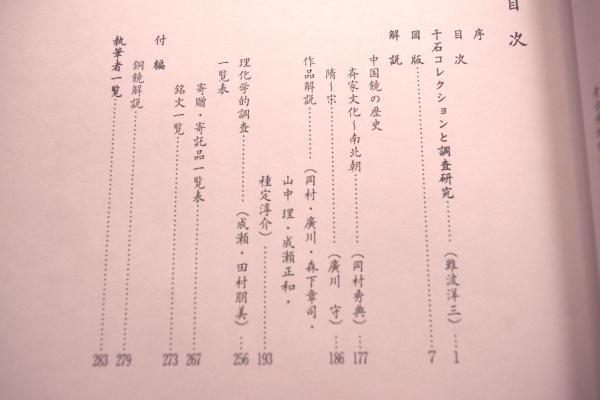 目次
序
目次
千石コレクションと調査研究………（難波洋三）…1
図版………7
解説
中国鏡の歴史
斉家文化～南北朝………（岡村秀典）…177
隋～宋………（廣川　守）…186
作品解説………（岡村・廣川・森下章司・
山中　理・成瀬正和・
種定淳介）………193
理化学的調査………（成瀬・田村朋美）…256
一覧表
寄贈・寄託品一覧表………267
銘文一覧………273
付編
銅鏡解説………279
執筆者一覧………283